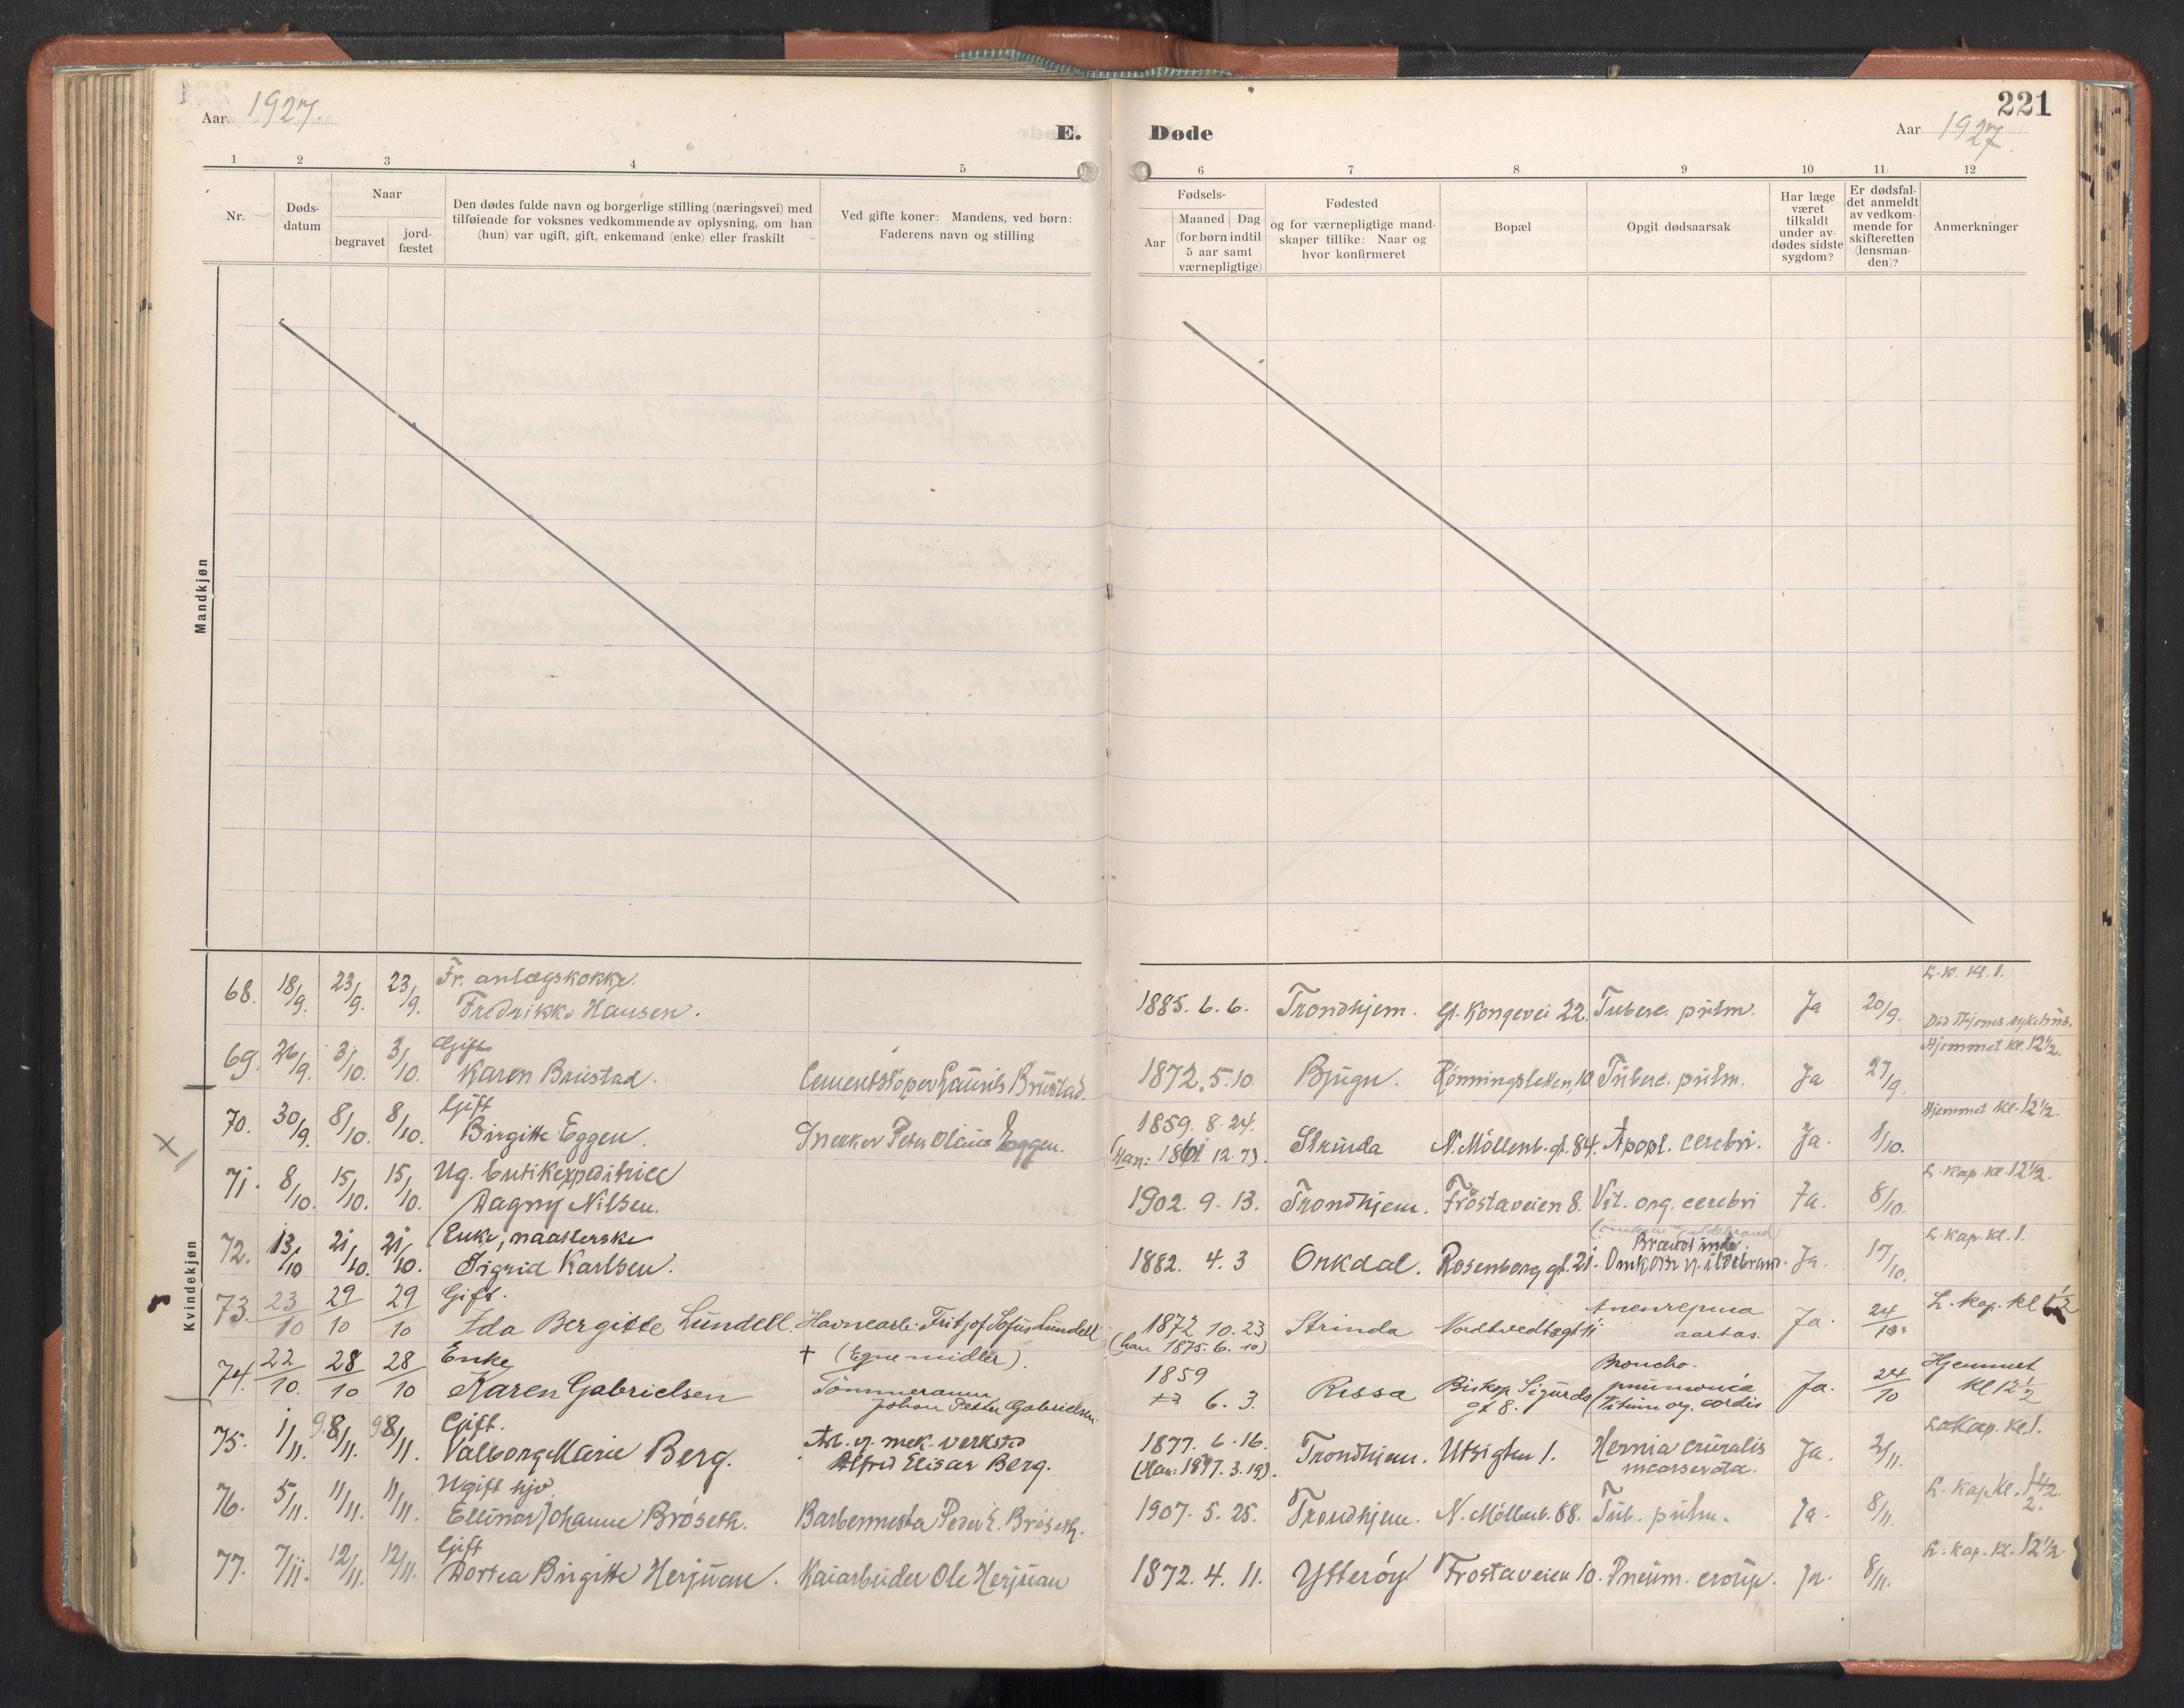 Aar 1927.
E.
1 2 3 4 5
Nr.
Døds-
datum
Naar
begravet
jord-
fæstet
Den dødes fulde navn og borgerlige stilling (næringsvei) med
tilføiende for voksnes vedkommende av oplysning, om han
(hun) var ugift, gift, enkemand (enke) eller fraskilt
Ved gifte koner: Mandens, ved børn:
Faderens navn og stilling
Mandkjøn
Kvindekjøn
68. 18/9. 23/9. 23/9. Fr. anlægskokke.
Fredrikke Hansen.
69. 26/9. 3/10. 3/10. Gift
Karen Brustad. Cementstöper Laurits Brustad.
70. 30/9. 8/10. 8/10. Gift
Birgitte Eggen. Snekker Peter Olaus Eggen.
71. 8/10. 15/10. 15/10. Ug. butikexpeditrice
Dagny Nilsen.
72. 13/10 21/10. 21/10. Enke, maalerske
Sigrid Karlsen.
73. 23/10 29/10 29/10 Gift.
Ida Bergitte Lundell. Havnearb. Fritjof Sofus Lundell
74. 22/10. 28/10 28/10 Enke + (Egne midler).
Karen Gabrielsen Tömmermann
Johan Petter Gabrielsen.
75. 1/11. 98/11. 98/11. Gift. Arb. v. mek. verksted
Valborg Marie Berg. Alfred Elisar Berg.
76. 5/11. 11/11. 11/11. Ugift hjv.
Ellinor Johanne Bröseth. Barbermester Peder E. Bröseth.
77. 7/11. 12/11. 12/11. Gift
Dortea Birgitte Herjuan. Kaiarbeider Ole Herjuan
Døde
221
Aar 1927.
6 7 8 9 10 11 12
Fødsels-
Aar
Maaned Dag
(for børn indtil
5 aar samt
værnepligtige)
Fødested
og for værnepligtige mand-
skaper tillike: Naar og
hvor konfirmeret
Bopæl
Opgit dødsaarsak
Har læge
været
tilkaldt
under av-
dødes sidste
sygdom?
Er dødsfal-
det anmeldt
av vedkom-
mende for
skifteretten
(lensman-
den)?
Anmerkninger
L. k. kl. 1.
1885. 6. 6. Trondhjem. Gl. Kongevei 22. Tuberc. pulm. Ja 20/9.
Död Thjems sykehus.
Hjemmet kl. 12½.
1872. 5. 10. Bjugn. Rönningsletten 10 Tuberc. pulm. Ja 27/9.
1859. 8. 24. Hjemmet kl. 12½.
(Han: 1861 12. 7). Strinda N. Möllenb. gt. 84. Apopl. cerebri. Ja. 1/10.
L. kap. kl. 12½.
1902. 9. 13. Trondhjem. Frostaveien 8. Vit. org. cerebri Ja. 8/10.
Brændt inde. L. kap. kl. 1.
1882. 4. 3 Orkdal. Rosenborg gt. 21. Omkom v. ildebrand. Ja. 17/10.
1872 10. 23 Strinda Aneurysma
aortas. Ja. 24/10. L. kap. kl 1½
(han 1875. 6. 10)
1859
6. 3. Rissa Biskop Sigurds
gt 8. Broncho-
pneumonia
(Vitium org. cordis Ja. 24/10 Hjemmet
kl 12½
1877. 6. 16.
(Han: 1877. 3. 19). Trondhjem. Utsigten 1. Hernia cruralis
incarserata. Ja. 2/11. La Kap. kl. 1.
1907. 5. 25. Trondhjem. N. Möllenb. 88. Tub. pulm. Ja. 8/11. L. Kap. kl. 1½
2.
1872. 4. 11. Ytteröy Frostaveien 10. Pneum. croup. Ja. 8/11. L. kap. kl. 12½.